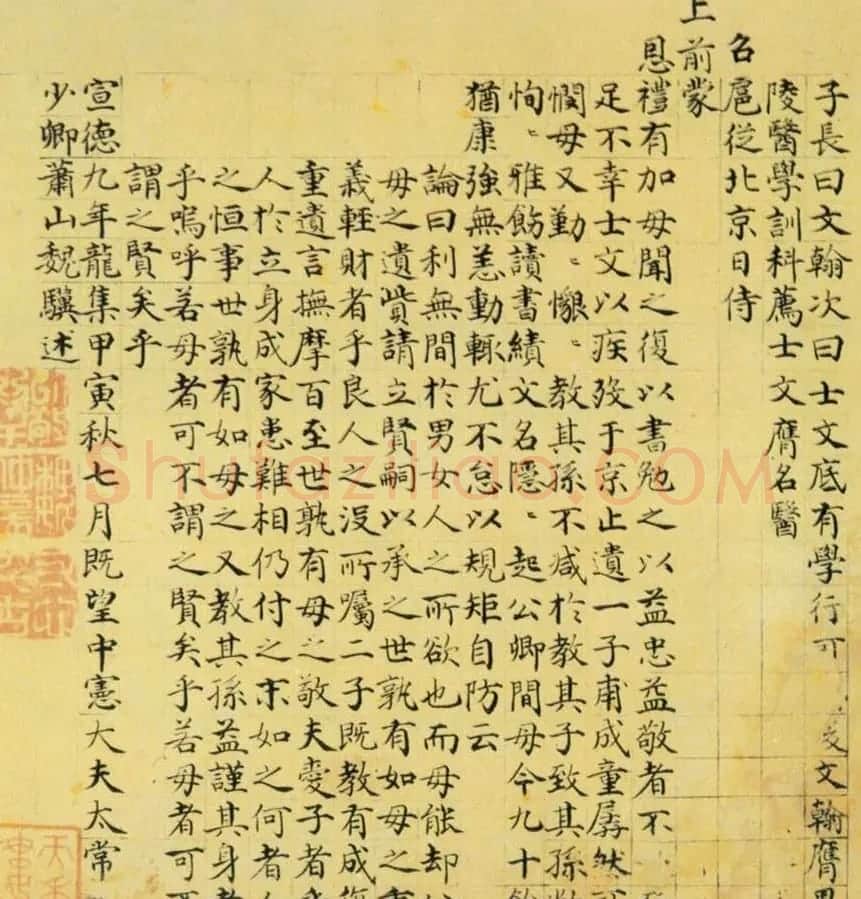 子長曰文翰次曰士文底有學行可文翰膺
陵醫學訓科薦士文膺名醫
召扈從北京日侍
上前蒙
恩禮有加母聞之復以書勉之以益忠益敬者不
足不幸士文以疾歿于京止遺一子甫成童孱然可
憫母又勤〻懇〻教其孫不減於教其子致其孫
恂〻雅飭讀書績文名隱〻起公卿間母今九十
猶康強無恙動輒尤不怠以規矩自防云
論曰利無間於男女人之所欲也而母能却
母之遺貲請立賢嗣以承之世孰有如母之
義輕財者乎良人之沒所囑二子既教有成
重遺言撫摩百至世孰有母之敬夫愛子者
人於立身成家患難相仍付之末如之何者
之恒事世孰有如母之又教其孫益謹其身
乎嗚呼若母者可不謂之賢矣乎若母者可
謂之賢矣乎
宣德九年龍集甲寅秋七月既望中憲大夫太常
少卿蕭山魏驥述
shufaziliao.COM